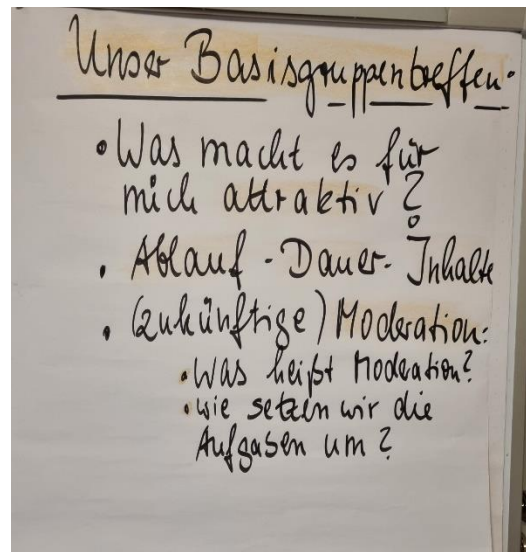 Unser Basisgruppentreffen.
• Was macht es für
mich attraktiv?
• Ablauf - Dauer - Inhalte
• (zukünftige) Moderation:
• Was heißt Moderation?
• wie setzen wir die
Aufgaben um?